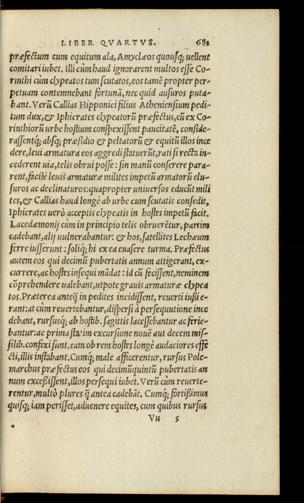 LIBER QVARTVS. 681
præfectum cum equitum ala, Amyclæos quousq; uellent
comitari iubet. Illi cùm haud ignorarent multos esse Co-
rinthi cùm clypeatos tum scutatos, eos tamē propter per-
petuam contemnebant fortunā, nec quid ausuros puta-
bant. Verū Callias Hipponici filius Atheniensium pedi-
tum dux, & Iphicrates clypeatorū præfectus, cū ex Co-
rinthiorū urbe hostium conspexissent paucitatē, conside-
rassentq́; absq; præsidio & peltatorū & equitū illos ince
dere, leui armatura eos aggredi statuerūt, rati si recta in-
cederent uia, telis obrui posse: sin manū conserere para-
rent, facilè leuis armaturæ milites impetū armatorū clu-
suros ac declinaturos: quapropter uniuersos educūt mili
tes, & Callias haud longè ab urbe cum scutatis consedit,
Iphicrates uerò acceptis clypeatis in hostes impetū facit.
Lacedæmonij cùm in principio telis obruerētur, partim
cadebant, alij uulnerabantur: & hos, satellites Lechæum
ferre iusserunt: soliq́; hi ex ea euasere turma. Præfectus
autem eos qui decimū pubertatis annum attigerant, ex-
currere, ac hostes insequi mādat: id cū fecissent, neminem
cōprehendere ualebant, utpote grauis armaturæ clypea
tos. Præterea anteq̄ in pedites incidissent, reuerti iussi e-
rant: at cùm reuertebantur, dispersi à persequutione ince
debant, rursusq́; ab hostib. sagittis lacessebantur ac ferie-
bantur: ac prima statim excursione nouē aut decem mis-
silib. confixi sunt. eam ob rem hostes longè audaciores effe
cti, illis instabant. Cumq́; male afficerentur, rursus Pole-
marchus præfectus eos qui decimūquintū pubertatis an
num excessissent, illos persequi iubet. Verū cùm reuerte-
rentur, multò plures q̄ antea cadebāt. Cumq́; fortissimus
quisq; iam perisset, aduenere equites, cum quibus rursus
Vu 5